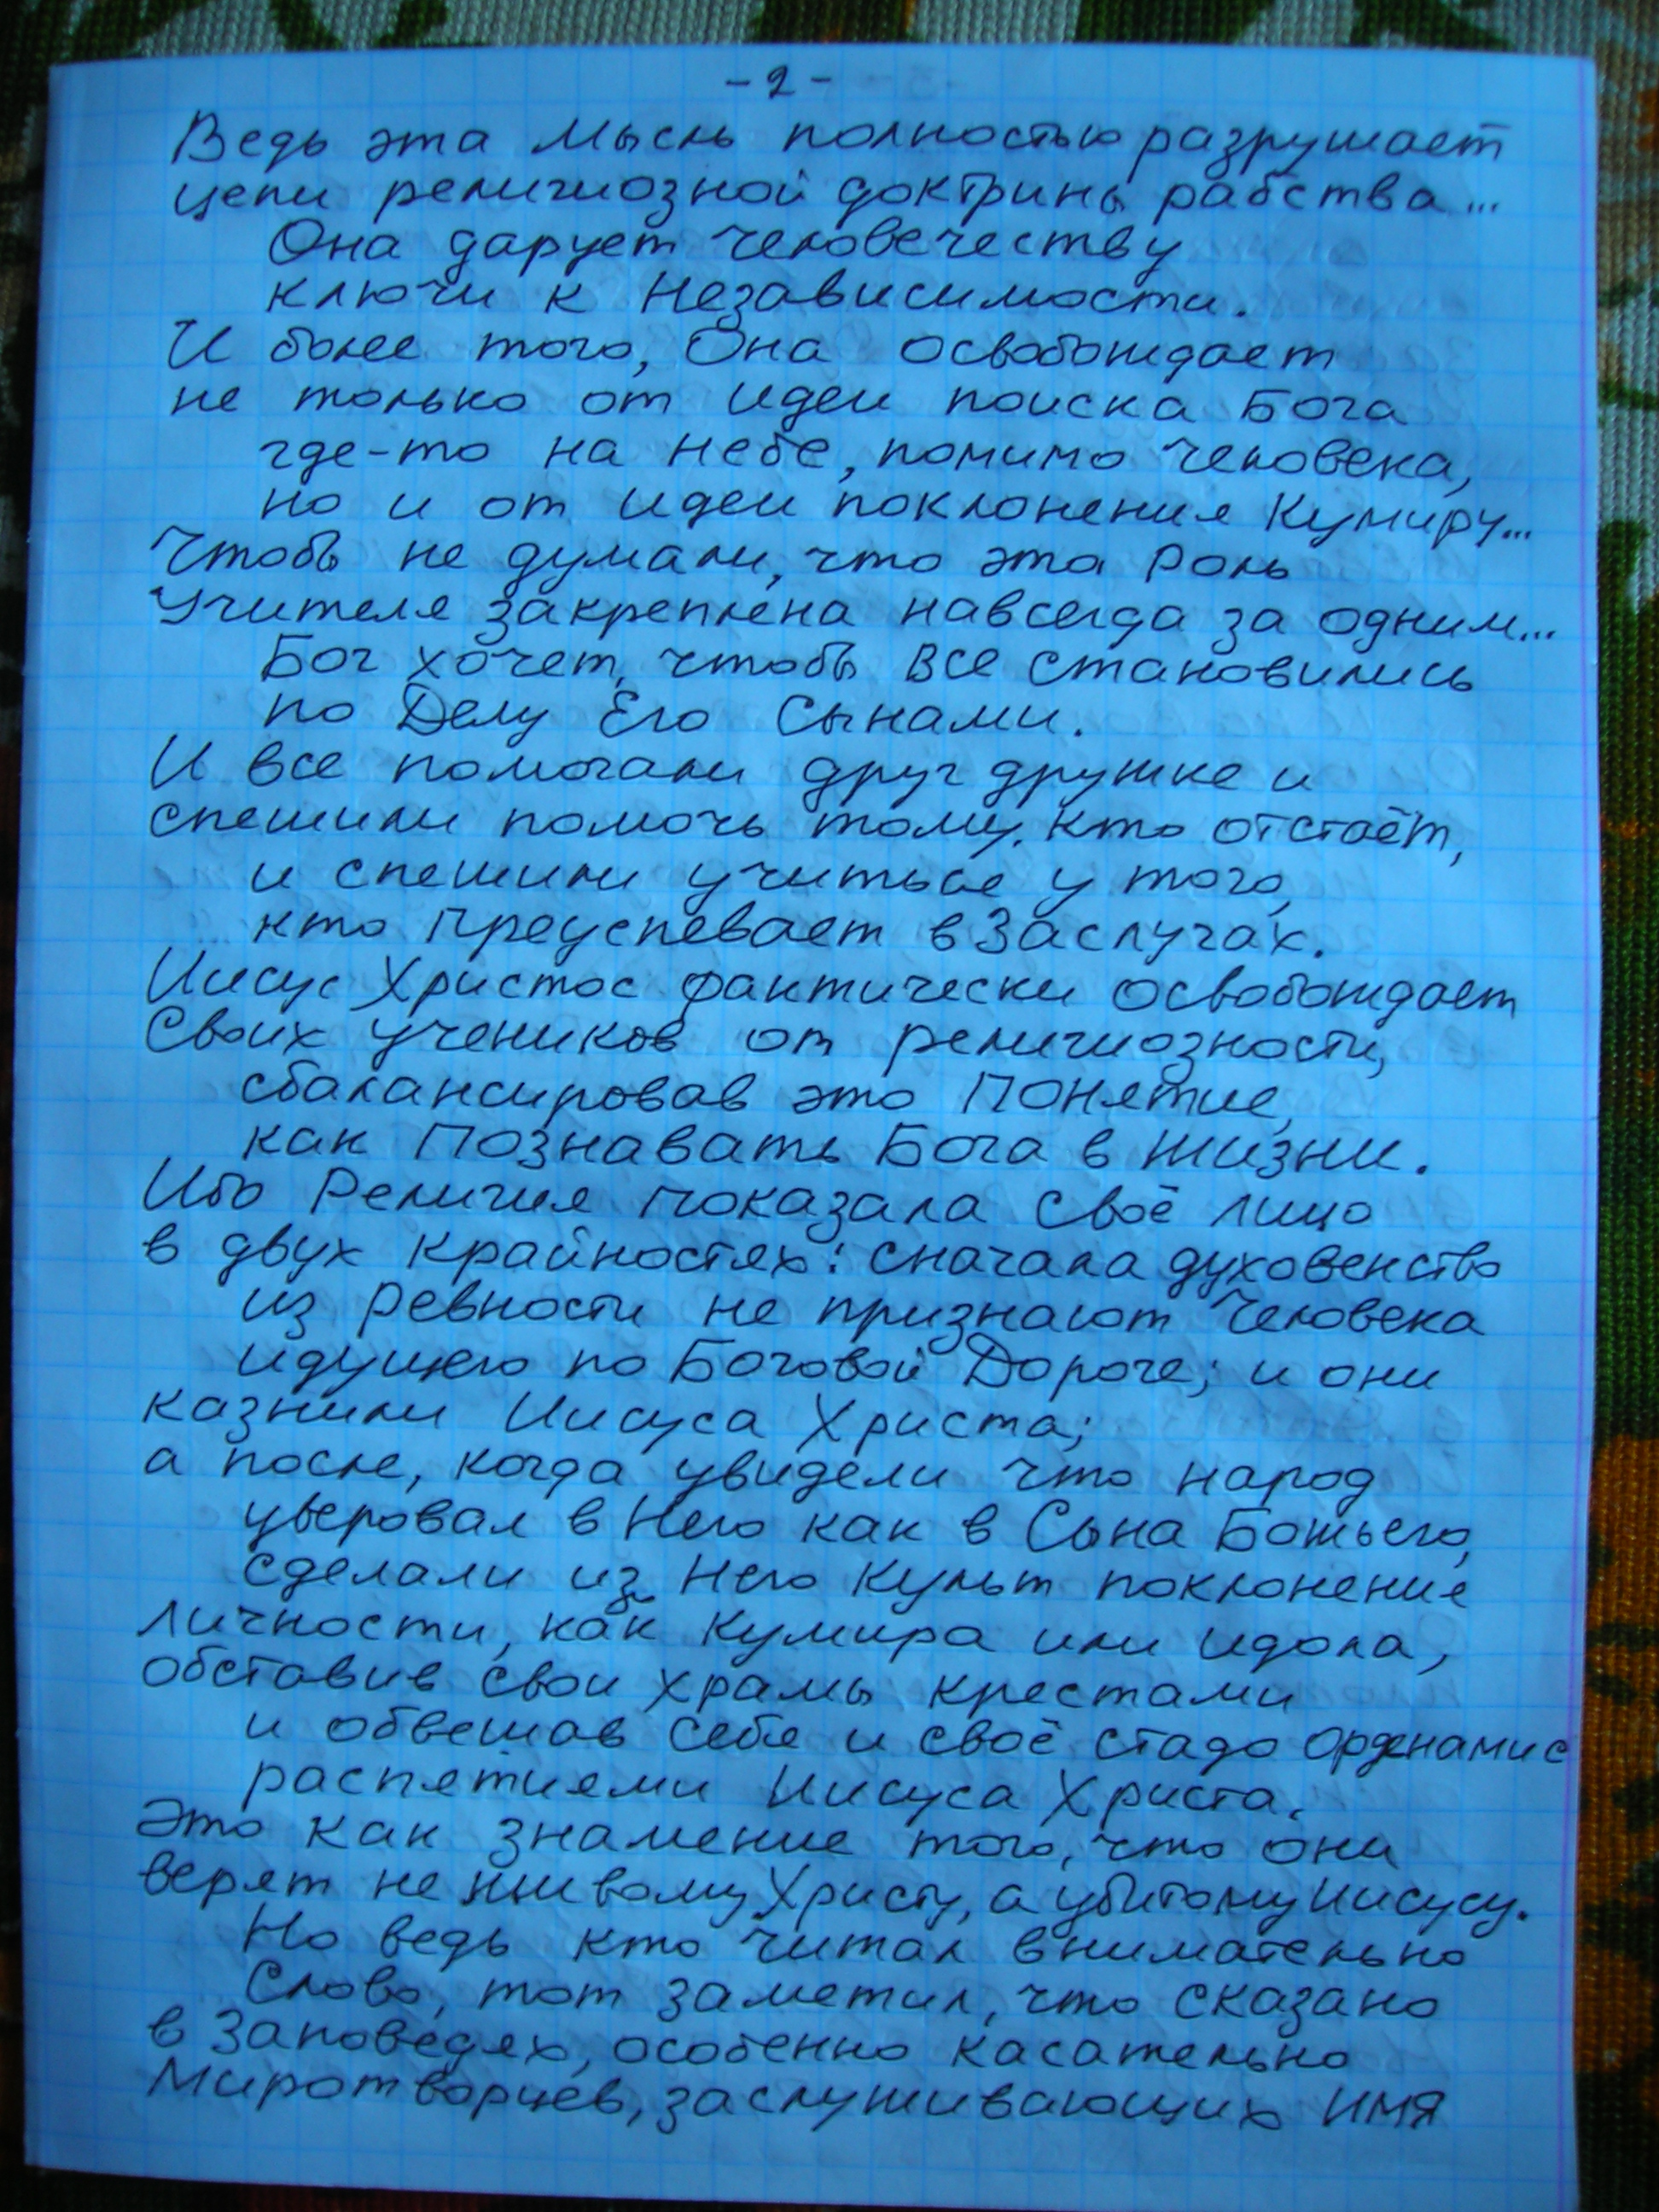 - 2 -
Ведь эта Мысль полностью разрушает
цепи религиозной доктрины рабства...
Она дарует Человечеству
ключи к Независимости.
И более того, Она освобождает
не только от идеи поиска Бога
где-то на небе, помимо Человека,
но и от идеи поклонения Кумиру...
Чтобы не думали, что эта Роль
Учителя закреплена навсегда за одним...
Бог хочет, чтобы все становились
по Делу Его Сынами.
И все помогали друг дружке и
спешили помочь тому, кто отстаёт,
и спешили учиться у того,
кто преуспевает в Заслугах.
Иисус Христос фактически освобождает
Своих учеников от религиозности,
сбалансировав это Понятие,
как Познавать Бога в Жизни.
Ибо Религия показала своё лицо
в двух крайностях: сначала духовенство
из Ревности не признают Человека
идущего по Боговой Дороге; и они
казнили Иисуса Христа;
а после, когда увидели что народ
уверовал в Него как в Сына Божьего,
сделали из Него Культ поклонения
личности, как Кумира или идола,
обставив свои храмы крестами
и обвешав себя и своё стадо орденами с
распятиями Иисуса Христа.
Это как знамение того, что они
верят не живому Христу, а убитому Иисусу.
Но ведь кто читал внимательно
Слово, тот заметил, что сказано
в Заповедях, особенно касательно
Миротворцев, заслуживающих имя